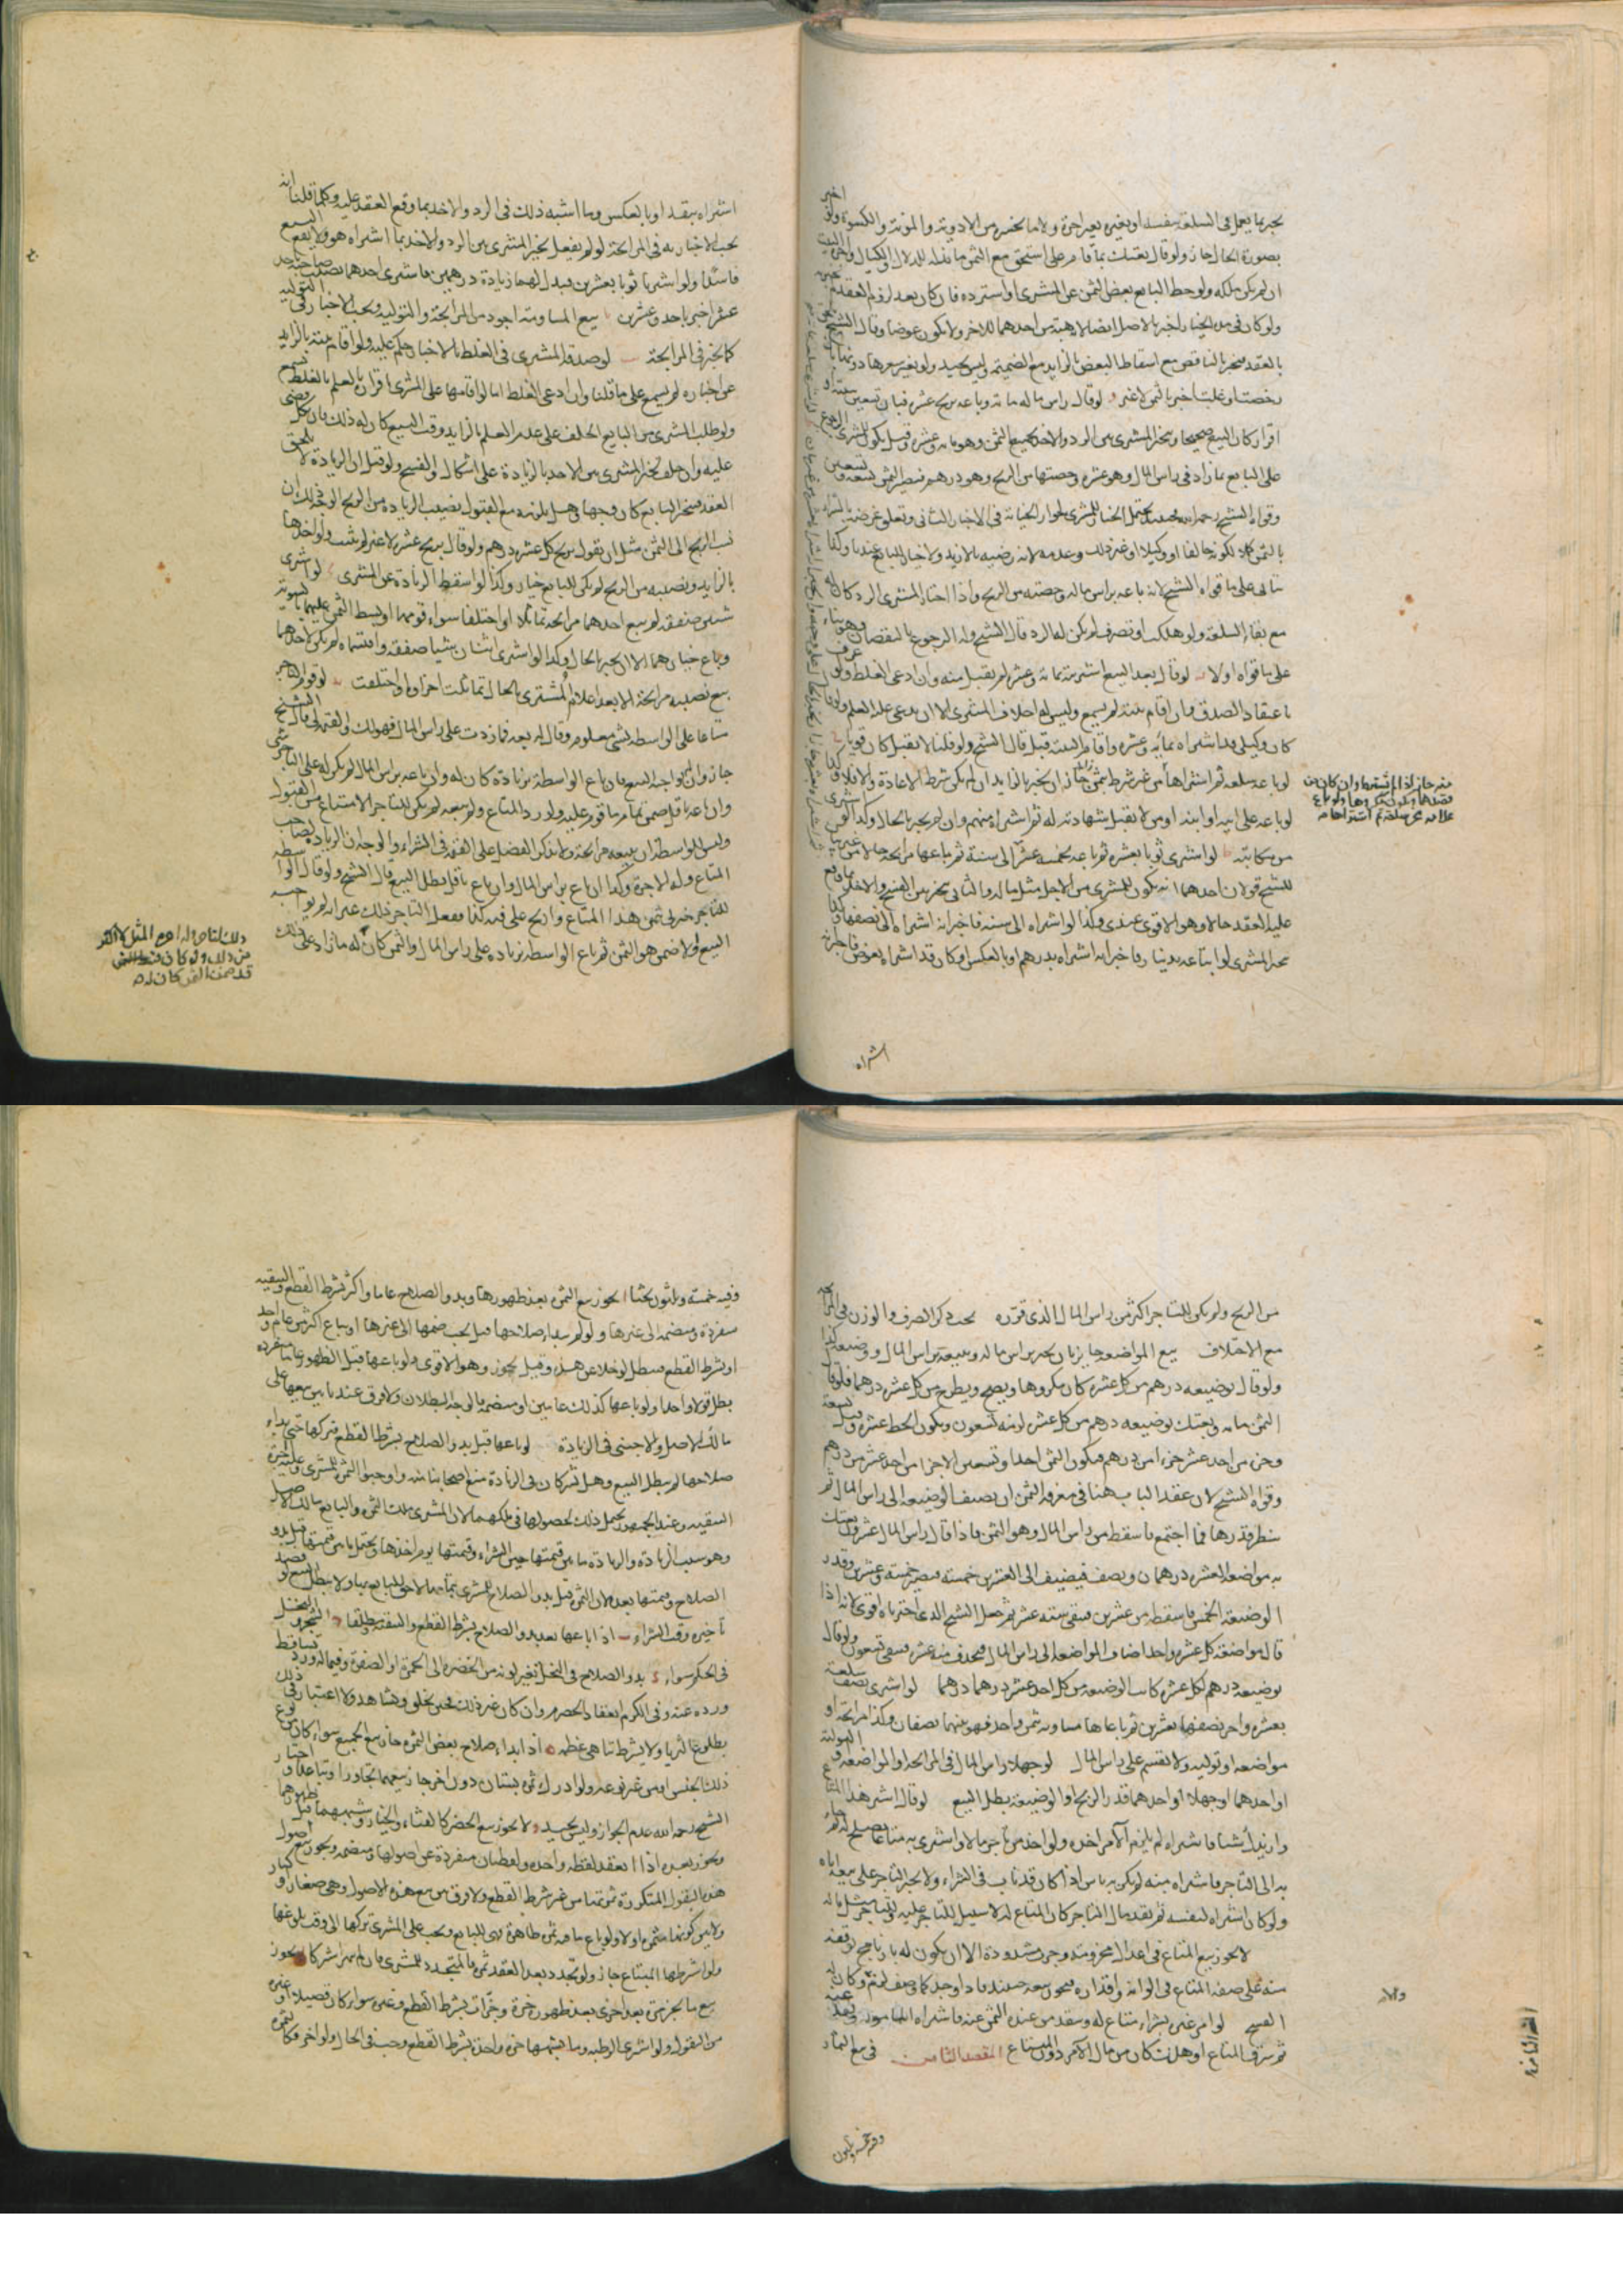 يخبر بما يعمل في السلعة بنفسه او بغيره بغير اجرة ولا بما يحضره من الادوية والمونة والكسوة ولو اخبر
بصورة الحال جاز ولو قال بعتك بما قام على استحق مع الثمن ما بذله للدلال والكيال واجرة البيت
ان لم يكن ملكه ولو حط البايع بعض الثمن عن المشتري او استرده فان كان بعد لزوم العقد لم يخبر به
ولو كان في مدة الخيار اخبر بالاصل ايضا لانه هبة من احدهما للاخر ولا يكون عوضا وقال الشيخ يلحق
بالعقد فيخبر بالناقص مع اسقاط البعض بالزايد مع الضميمة وليس بجيد ولو تغير سعرها دونها
رخصت او غلت اخبر بالثمن لا غير لو قال راس ماله مائة وباعه بربح عشرة فبان تسعين ببينة او
اقرار كان البيع صحيحا ويتخير المشتري بين الرد والاخذ بجميع الثمن وهو مائة وعشرة وقيل يكون للمشتري الرجوع
على البايع بما زاد في راس المال وهو عشرة وحصتها من الربح وهو درهم فيصير الثمن تسعة وتسعين
وقواه الشيخ رحمه الله فحينئذ يحتمل الخيار للمشتري لجواز الخيانة في الاخبار الثاني وتعلق غرضه بالشراء
بالثمن كلا لكونه حالفا او وكيلا او غير ذلك وعدمه لانه رضيه بالازيد ولا خيار للبايع عندنا وكذا
ثاني على ما قواه الشيخ لانه باعه براس ماله وحصته من الربح واذا اختار المشتري الرد كان له
مع بقاء السلعة ولو هلكت او تصرف لم يكن له الرد قال الشيخ وله الرجوع بالنقصان وهو بناء
على ما قواه اولا لو قال بعد البيع اشتريته بمائة وعشرة لم يقبل منه وان ادعى الغلط ولو عرف
باعتقاد الصدق وان اقام بينة لم يسمع وليس له احلاف المشتري الا ان يدعي عليه العلم ولو قال
كان وكيلي قد اشتراه بمائة وعشرة واقام البينة قبل قال الشيخ ولو قلنا لا يقبل كان قويا
لو باعه سلعة ثم اشتراها من غير شرط بثمن زائد جاز ان يخبر بالزايد ان لم يكن شرط الاعادة والا فلا وكذا
لو باعه على ابيه او ابنه او من لا تقبل شهادته له ثم اشتراه منهم وان لم يخبر بالحال وكذا لو اشترى
من مكاتبه لو اشترى ثوبا بعشرة ثم باعه بخمسة عشر الى سنة ثم باعها مرابحة حالا من غير بيان
للشيخ قولان احدهما انه يكون للمشتري من الاجل مثل ماله والثاني يتخير بين الفسخ والاخذ بما وقع
عليه العقد حالا وهو الاقوى عندي وكذا لو اشتراه الى سنة فاخبر انه اشتراه الى نصفها وكذا
يتخير المشتري لو ابتاعه بدينار فاخبر انه اشتراه بدرهم او بالعكس او كان قد اشتراه بعرض فاخبر انه
اشتراه
اشتراه بنقد او بالعكس وما اشبه ذلك في الرد والاخذ بما وقع العقد عليه وكلما قلنا انه
يجب الاخبار به في المرابحة لو لم يفعل يخير المشتري بين الرد والاخذ بما اشتراه هو ولا يقع البيع
فاسدا ولو اشتريا ثوبا بعشرين فبذل لهما زيادة درهمين فاشترى احدهما نصيب صاحبه باحد
عشر اخبر باحد وعشرين بيع المساومة اجود من المرابحة والتولية ويجب الاخبار في التولية
كما يخبر في المرابحة لو صدقه المشتري في الغلط بالاخبار حكم عليه ولو اقام بينة بالزايد
عن اخباره لم يسمع على ما قلنا وان ادعى الغلط اما لو اقامها على المشتري اقراره بالعلم بالغلط تسمع
ولو طلب المشتري من البايع الحلف على عدم العلم بالزايد وقت البيع كان له ذلك فان نكل قضى
عليه وان حلف يخير المشتري بين الاخذ بالزيادة على اشكال والفسخ ولو قيل ان الزيادة لا تلحق
العقد فيتخير البايع كان وجها وهل يلزمه مع القبول نصيب الزيادة من الربح الوجه ذلك ان
نسب الربح الى الثمن مثل ان يقول بربح كل عشرة درهم ولو قال بربح عشرة لا غير لم يثبت ولو اخذها
بالزايد ونصيبه من الربح لم يكن للبايع خيار وكذا لو اسقط الزيادة عن المشتري لو اشترى
شيئين صفقة لم يبع احدهما مرابحة تماثلا او اختلفا سواء قومهما او بسط الثمن عليهما بالسوية
وباع خيارهما الا ان يخبر بالحال وكذا لو اشترى اثنان شيئا صفقة واقتسماه لم يكن لاحدهما
بيع نصيبه مرابحة الا بعد اعلام المشتري بالحال تماثلت اجزاءا او اختلفت لو قوم التاجر
متاعا على الواسطة بشئ معلوم وقال له بعه فما زدت على راس المال فهو لك والقيمة لي قال الشيخ
جاز وان لم يواجبه البيع فان باع الواسطة بزيادة كان له وان باعه براس المال لم يكن له على التاجر شئ
وان باعه باقل ضمن تمام ما قوم عليه ولو رد المتاع ولم يبعه لم يكن للتاجر الامتناع من القبول
وليس للواسطة ان يبيعه مرابحة ولا يذكر الفضل على القيمة في الشراء والوجه ان الزيادة لصاحب
المتاع وله الاجرة وكذا ان باع براس المال وان باع باقل بطل البيع قال الشيخ ولو قال الواسطة
للتاجر خبرني بثمن هذا المتاع واربح على فيه كذا ففعل التاجر ذلك غير انه لم يواجبه
البيع ولا ضمن هو الثمن ثم باع الواسطة بزيادة على راس المال والثمن كان له ما زاد على ذلك
من الربح ولم يكن للتاجر اكثر من راس المال الذي قرره يجب ذكر الصرف والوزن في المرابحة
مع الاختلاف بيع المواضعة جايز بان يخبر براس ماله ويبيعه براس المال ووضيعة كذا
ولو قال بوضيعة درهم من كل عشرة كان مكروها ويصح ويطرح من كل عشرة درهما فلو قال
الثمن مائة وبعتك بوضيعة درهم من كل عشرة لزمه تسعون ويكون الحط عشرة وقيل تسعة
وجزء من احد عشر جزء من درهم فيكون الثمن احدا وتسعين الا جزءا من احد عشر من درهم
وقواه الشيخ لان عقد الباب هنا في معرفة الثمن ان يضيف الوضيعة الى راس المال ثم
ينظر قدرها فما اجتمع فاسقط من راس المال وهو الثمن فاذا قال راس المال عشرون بعتك
به مواضعة العشرة درهمان ونصف فيضيف الى العشرين خمسة فيصير خمسة وعشرين وقدر
الوضيعة الخمس فاسقطه من عشرين فيبقى ستة عشر ثم جعل الشيخ الذي اخترناه اقوى لانه اذا
قال مواضعة كل عشرة واحدا اضاف المواضعة الى راس المال فيحذف منه عشرة فيبقى تسعون ولو قال
بوضيعة درهم لكل عشرة كانت الوضيعة من كل احد عشر درهما درهما لو اشترى نصف سلعة
بعشرة واخر نصفها بعشرين ثم باعاها مساومة بثمن واحد فهو بينهما نصفان وكذا مرابحة او
مواضعة او تولية ولا يقسم على راس المال لو جهلا راس المال في المرابحة او المواضعة او التولية
او احدهما او جهلا او احدهما قدر الربح او الوضيعة بطل البيع لو قال اشتر هذا المتاع
وازيدك شيئا فاشتراه لم يلزم الآمر اخذه ولو اخذ من تاجر مالا واشترى به متاعا يصلح له ثم جاء
به الى التاجر فاشتراه منه لم يكن به باس اذا كان قد ناب في الشراء ولا يجبر التاجر على بيعه اياه
ولو كان اشتراه لنفسه ثم نقد مال التاجر كان المتاع له لا سبيل للتاجر عليه وللتاجر مثل ماله
لا يجوز بيع المتاع في اعدال محزومة وجرب مشدودة الا ان يكون له بارنامج يوقفه
منه على صفة المتاع في الوانه واقداره فيجوز بيعه حينئذ فاذا وجد كما وصف لزمه وكان له
الفسخ لو امر غيره بشراء متاع له وينقد من عنده الثمن عنه فاشتراه المامور ونقد عنه
ثم سرق المتاع او هلك كان من مال الآمر دون المبتاع المقصد الثامن في بيع الثمار
وفيه خمسة وثلثون
وفيه خمسة وثلثون بحثا ا يجوز بيع الثمرة بعد ظهورها وبدو الصلاح عاما واكثر بشرط القطع والتبقية
منفردة ومنضمة الى غيرها ولو لم يبد صلاحها قيل يجب ضمها الى غيرها او يباع اكثر من عام واحد
او بشرط القطع فيبطل لو خلا عن هذه وقيل يجوز وهو الاقوى ولو باعها قبل الظهور عاما منفردة
بطل قولا واحدا ولو باعها كذلك عامين او منضمة فالوجه البطلان ولا فرق عندنا بين بيعها على
مالك الاصل والاجنبي في الزيادة لو باعها قبل بدو الصلاح بشرط القطع فتركها حتى بدا
صلاحها لم يبطل البيع وهل يشركان في الزيادة منع اصحابنا منه واوجبوا الثمن للمشتري وعليه اجرة
التبقية وعند الجمهور يحتمل ذلك لحصولها في ملكهما لان المشتري ملك الثمرة والبايع مالك الاصل
وهو سبب الزيادة والزيادة ما بين قيمتها حين الشراء وقيمتها يوم اخذها ويحتمل ما بين قيمتها قبل بدو
الصلاح وقيمتها بعده لان الثمرة قبل بدو الصلاح للمشتري بتمامها لا حق للبايع فيها ولا يبطل البيع لو قصد
تاخيره وقت الشراء اذا باعها بعد بدو الصلاح بشرط القطع والتبقية مطلقا الشجر والنخل
في الحكم سواء بدو الصلاح في النخل تغير لونه من الخضرة الى الحمرة او الصفرة وفيما له ورد تساقط
ورده عنه وفي الكرم انعقاد الحصرم وان كان غير ذلك فحين يخلق ويشاهد ولا اعتبار في ذلك
بطلوع الثريا ولا يشترط تناهي عظمه اذا بدا صلاح بعض الثمرة جاز بيع الجميع سواء كان من نوع
ذلك الجنس او من غير نوعه ولو ادرك ثمرة بستان دون اخر جاز بيعهما تجاورا او تباعدا واختار
الشيخ رحمه الله عدم الجواز وليس بجيد ولا يجوز بيع الخضر كالقثاء والخيار وشبههما قبل ظهورهما
ويجوز بعده اذا انعقد لقطة واحدة ولقطات منفردة عن اصولها ومنضمة ويجوز بيع اصول
هذه البقول المتكررة ثمرتها من غير شرط القطع ولا فرق بين بيع هذه الاصول وهي صغار او كبار
ولا بين كونها مثمرة او لا ولو باع ما فيه ثمرة ظاهرة فهي للبايع ويجب على المشتري تركها الى وقت بلوغها
ولو اشترطها المبتاع جاز ولو تجدد بعد العقد ثمرة فالمتجدد للمشتري فان لم يتميز اشتركا يجوز
بيع ما يجز مرة بعد اخرى بعد ظهوره جزة وجزات بشرط القطع وغيره سواء كان قصيلا او غيره
من البقول ولو اشترى الرطبة وما اشبهها جزة واحدة بشرط القطع وجب في الحال ولو اخر فكالثمرة